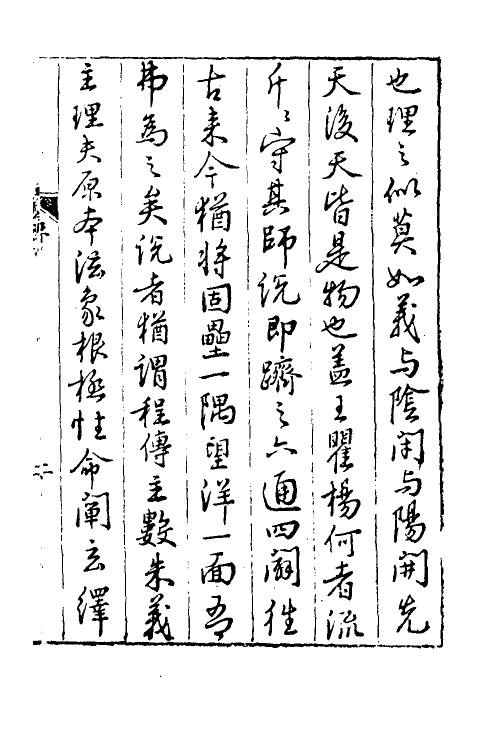 也理之似莫如義与陰閉与陽開先
天後天皆是物也盖王瞿楊何者流
斤〻守其師說即躋之六通四闢往
古來今猶將固壘一隅望洋一面吾
弗為之矣說者猶謂程傳主數朱義
主理夫原本法象根極性命闡玄繹
二